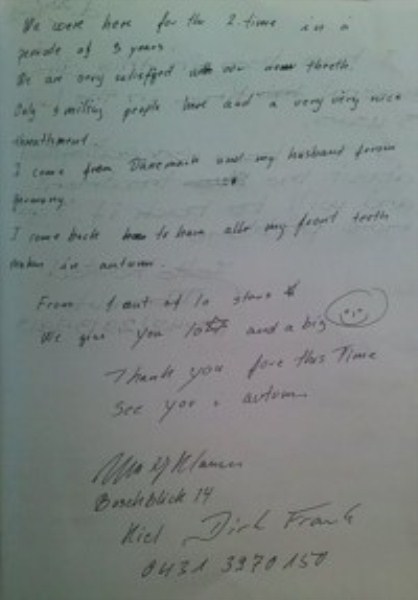 We were here for the 2. time in a
periode of 3 years.
We are very satisfyed with our new threth.
Only smiling people here and a very very nice
threathment.
I come from Dänemark and my husband from
Germany.
I come back to have all my front teeth
makes in autumn.
From 1 out of 10 stars
We give you 10 and a big
Thank you fore this Time
See you autumn
Boschblick 14
Kiel Dirk Frank
0431 3970150